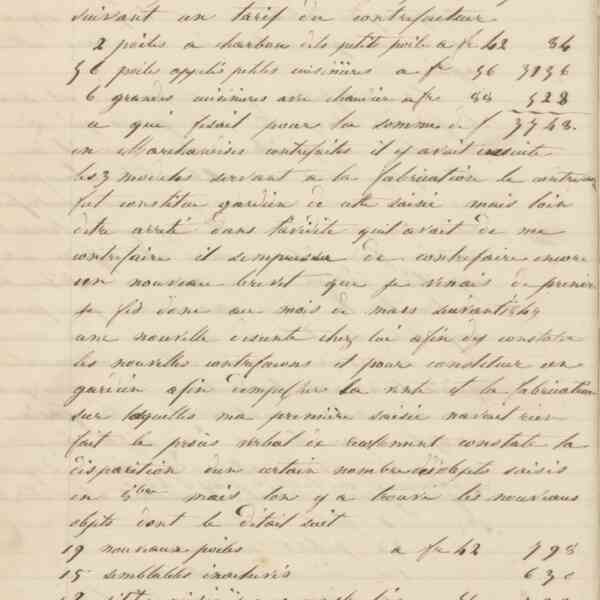 suivant un tarif du contrefacteur
2 poëles a charbon dits petits poële a fr 42 84
56 poëles appelés petites cuisinières a fr 56 3136
6 grandes cuisinières avec chaudière a frs 88 528
ce qui fesait pour la somme de f 3748.
en Marchandises contrefaites il y avait ensuite
les 3 moules servant a la fabrication le contrev
fut constitué gardien de cete saisie mais loin
detre arreté dans lavidité quil avait de me
contrefaire il sempressa de contrefaire encore
un nouveau brevet que je venais de prendre
je fis donc au mois de mars suivant 1849
une nouvelle descente chez lui afin dy constater
les nouvelles contrefacons et pour constituer un
gardien afin dempecher la vente et la fabrication
sur lesquelles ma première saisie navait rien
fait le procès verbal de recolement constate la
disparition dun certain nombre des objets saisis
en 8bre mais lon y a trouvé les nouveaux
objets dont le détail suit
19 nouveaux poëles a fr 42 798
15 semblables inachevés 630